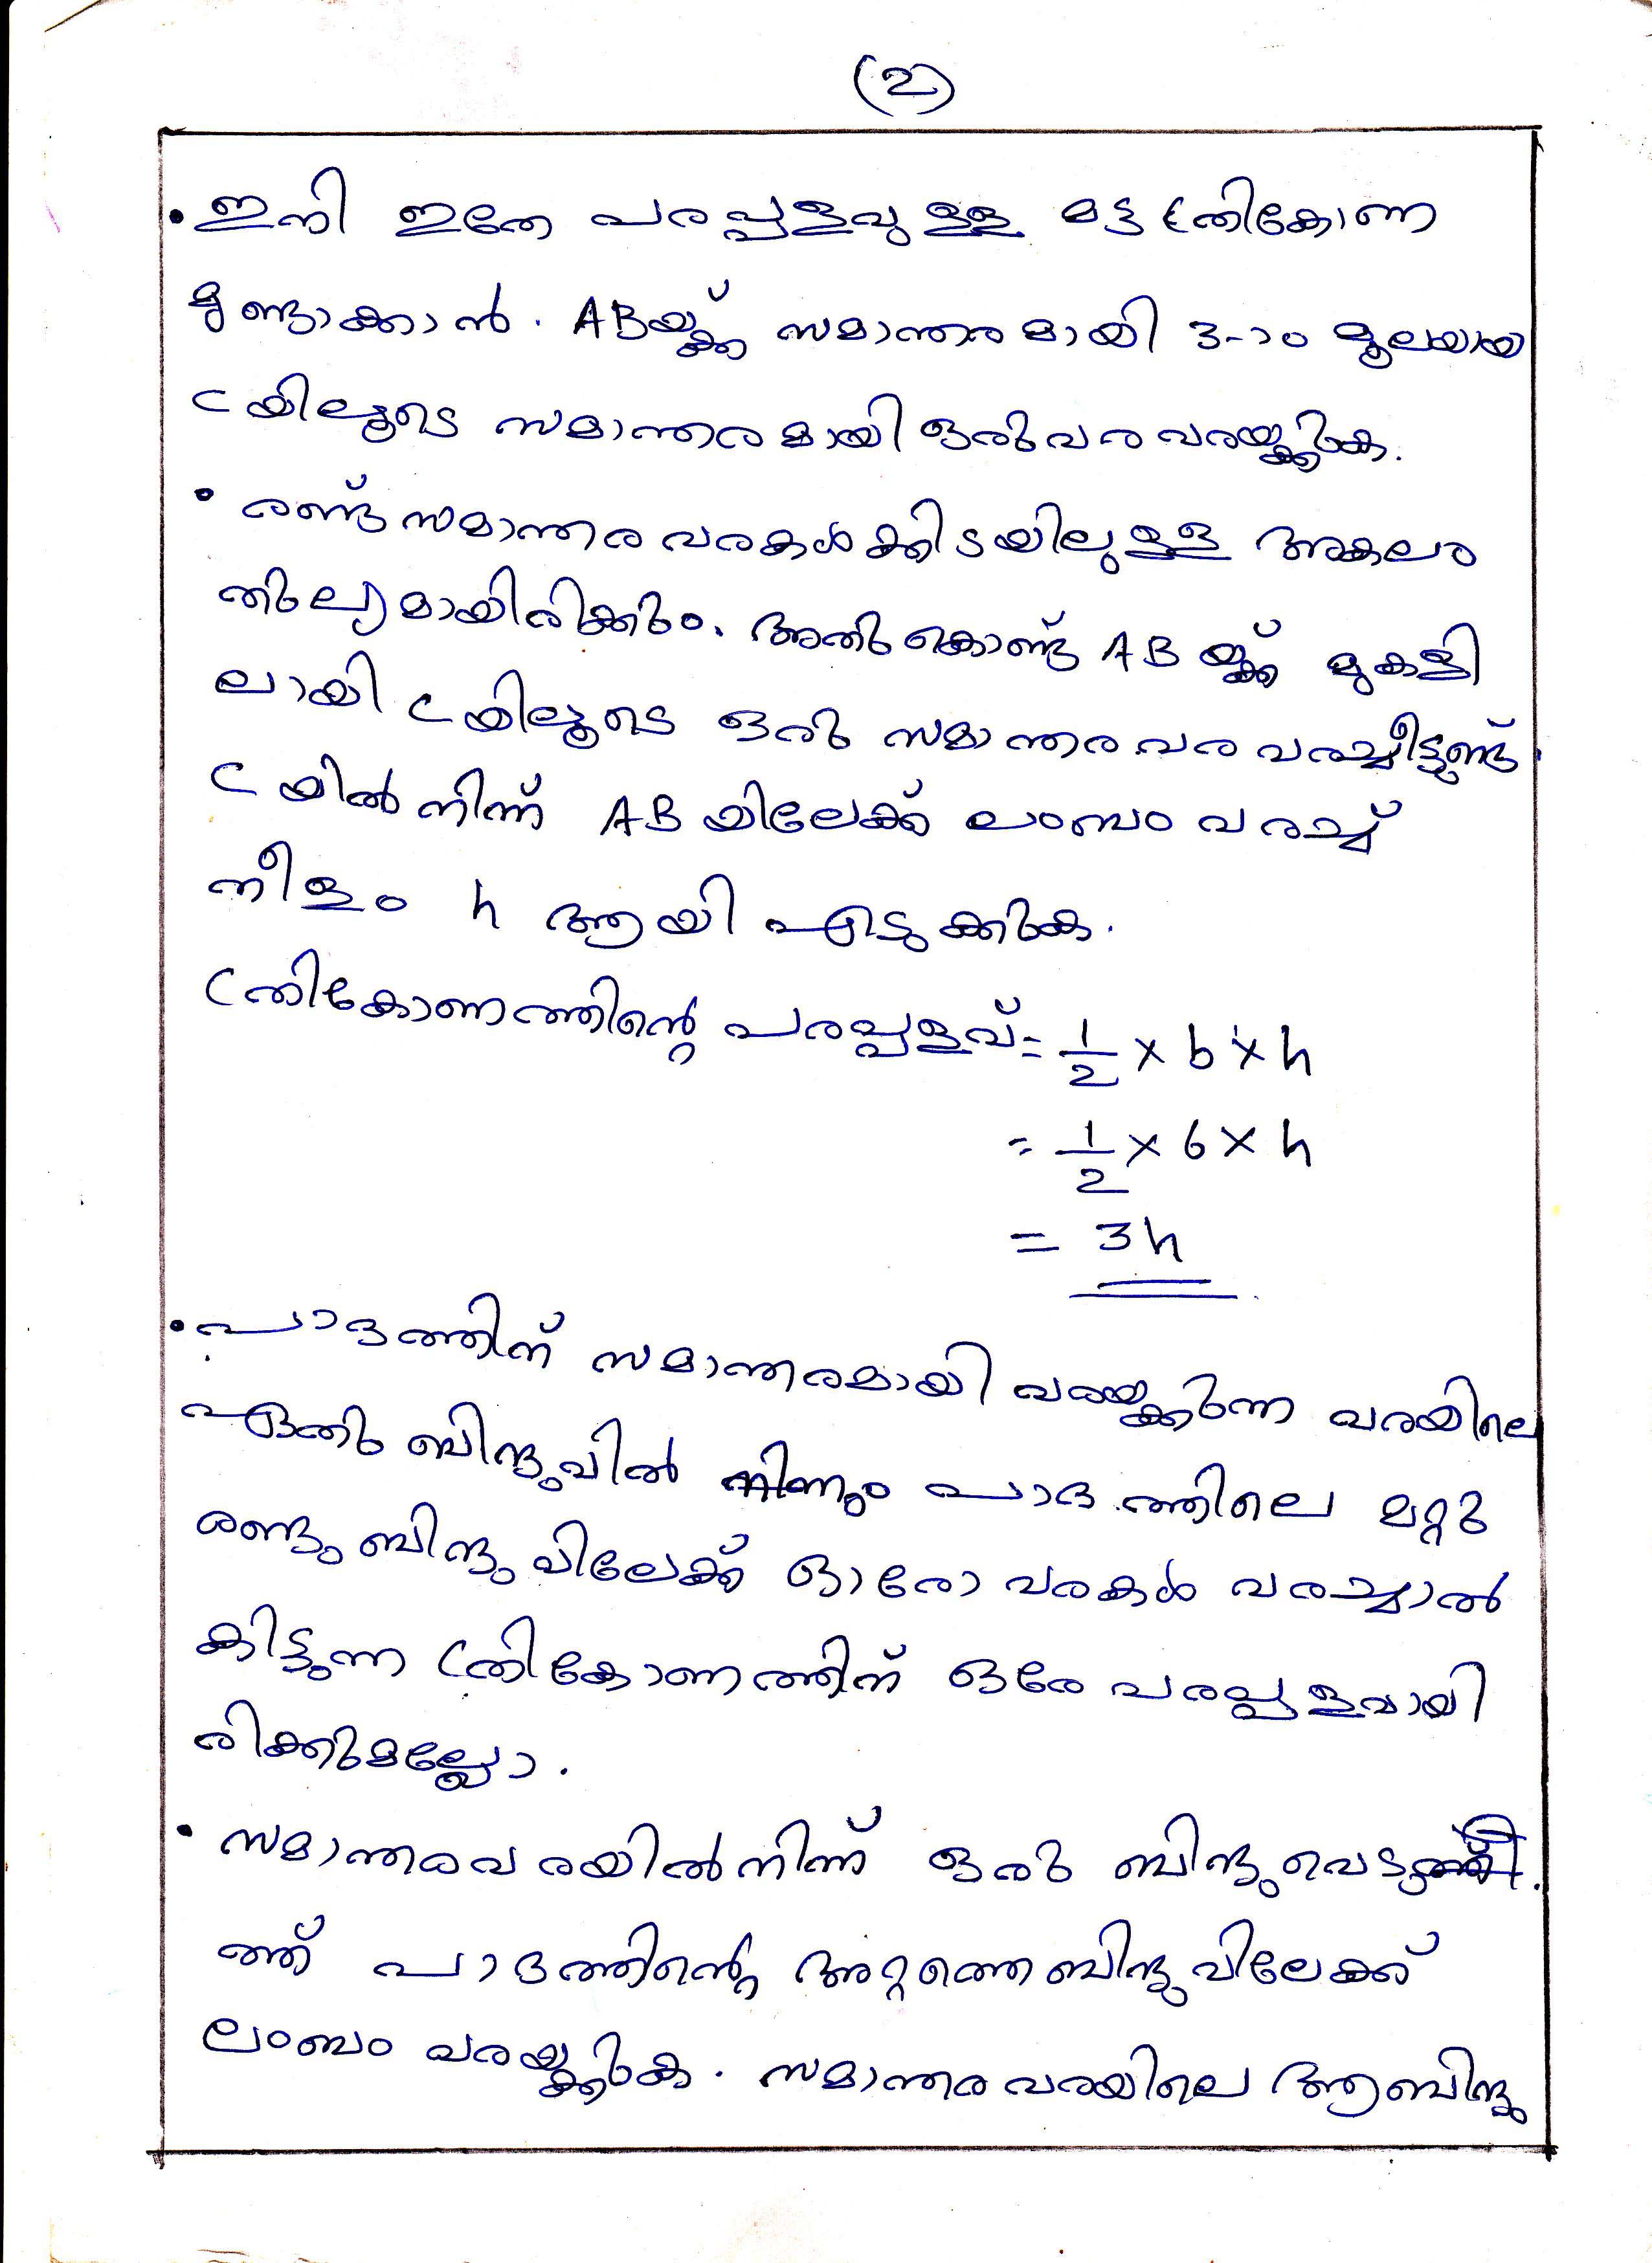 (2)
• ഇനി ഇതേ പരപ്പളവുള്ള മട്ട ത്രികോണ
മുണ്ടാക്കാൻ. ABയ്ക്ക് സമാന്തരമായി 3-ാം മൂലയായ
C യിലൂടെ സമാന്തരമായി ഒരു വര വരയ്ക്കുക.
• രണ്ട് സമാന്തര വരകൾക്കിടയിലുള്ള അകലം
തുല്യമായിരിക്കും. അതുകൊണ്ട് AB യ്ക്ക് മുകളി
ലായി C യിലൂടെ ഒരു സമാന്തര വര വരച്ചിട്ടുണ്ട്.
C യിൽ നിന്ന് AB യിലേക്ക് ലംബം വരച്ച്
നീളം h ആയി എടുക്കുക.
ത്രികോണത്തിന്റെ പരപ്പളവ് = 1/2 × b × h
= 1/2 × 6 × h
= 3h
• പാദത്തിന് സമാന്തരമായി വരയ്ക്കുന്ന വരയിലെ
ഏതു ബിന്ദുവിൽ നിന്നും പാദത്തിലെ മറ്റു
രണ്ടു ബിന്ദുവിലേക്ക് ഓരോ വരകൾ വരച്ചാൽ
കിട്ടുന്ന ത്രികോണത്തിന് ഒരേ പരപ്പളവായി
രിക്കുമല്ലോ.
• സമാന്തരവരയിൽ നിന്ന് ഒരു ബിന്ദുവെടു
ത്ത് പാദത്തിന്റെ അറ്റത്തെ ബിന്ദുവിലേക്ക്
ലംബം വരയ്ക്കുക. സമാന്തര വരയിലെ ആ ബിന്ദു